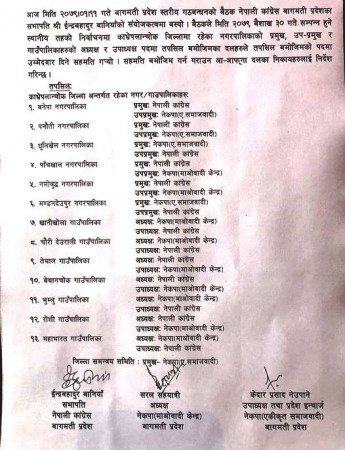 आज मिति २०७९/०१/११ गते बागमती प्रदेश स्तरीय गठबन्धनको बैठक नेपाली कांग्रेस बागमती प्रदेशका
सभापती श्री ईन्द्रबहादुर बानियाँको संयोजकत्वमा बस्यो । बैठकले मिति २०७९ बैशाख ३० गते सम्पन्न हुने
स्थानीय तहको निर्वाचनमा काभ्रेपलान्चोक जिल्लामा रहेका नगरपालिकाको प्रमुख, उप-प्रमुख र
गाउँपालिकाहरुको अध्यक्ष र उपाध्यक्ष पदमा तपसिल बमोजिमका दलहरुले तपसिल बमोजिमको पदमा
उम्मेदवारी दिने सहमति गर्‍यो । सहमति बमोजिम गर्न गराउन आ-आफ्ना दलका निकायहरुलाई निर्देश
गरिन्छ ।
तपसिल:
काभ्रेपलान्चोक जिल्ला अन्तर्गत रहेका नगर/गाउँपालिकाहरु:
१. बनेपा नगरपालिका प्रमुख: नेपाली कांग्रेस
उपप्रमुख: नेकपा(ए.समाजवादी)
२. पनौती नगरपालिका प्रमुख: नेपाली कांग्रेस
उपप्रमुख: नेकपा(ए.समाजवादी)
३. धुलिखेल नगरपालिका प्रमुख: नेपाली कांग्रेस
उपप्रमुख: नेकपा(ए.समाजवादी)
४. पाँचखाल नगरपालिका प्रमुख: नेपाली कांग्रेस
उपप्रमुख: नेकपा(माओवादी केन्द्र)
५. नमोबुद्ध नगरपालिका प्रमुख: नेकपा(माओवादी केन्द्र)
उपप्रमुख: नेपाली कांग्रेस
६. मण्डनदेउपुर नगरपालिका प्रमुख: नेकपा(ए.समाजवादी)
उपप्रमुख: नेपाली कांग्रेस
७. खानीखोला गाउँपालिका अध्यक्ष: नेकपा(माओवादी केन्द्र)
उपाध्यक्ष: नेपाली कांग्रेस
८. चौंरी देउराली गाउँपालिका अध्यक्ष: नेकपा(माओवादी केन्द्र)
उपाध्यक्ष: नेपाली कांग्रेस
९. तेमाल गाउँपालिका अध्यक्ष: नेकपा(माओवादी केन्द्र)
उपाध्यक्ष: नेपाली कांग्रेस
१०. बेथानचोक गाउँपालिका अध्यक्ष: नेपाली कांग्रेस
उपाध्यक्ष: नेकपा(माओवादी केन्द्र)
११. भुम्लु गाउँपालिका अध्यक्ष: नेकपा(माओवादी केन्द्र)
उपाध्यक्ष: नेपाली कांग्रेस
१२. रोशी गाउँपालिका अध्यक्ष: नेकपा(माओवादी केन्द्र)
उपाध्यक्ष: नेपाली कांग्रेस
१३. महाभारत गाउँपालिका अध्यक्ष: नेकपा(माओवादी केन्द्र)
उपाध्यक्ष: नेपाली कांग्रेस
जिल्ला समन्वय समिति : प्रमुख- नेकपा(ए.समाजवादी)
ईन्द्रबहादुर बानियाँ सरल सहयात्री केदार प्रसाद नेउपाने
सभापति अध्यक्ष उपाध्यक्ष तथा प्रदेश इन्चार्ज
नेपाली कांग्रेस नेकपा(माओवादी केन्द्र) नेकपा(एकीकृत समाजवादी)
बागमती प्रदेश बागमती प्रदेश बागमती प्रदेश